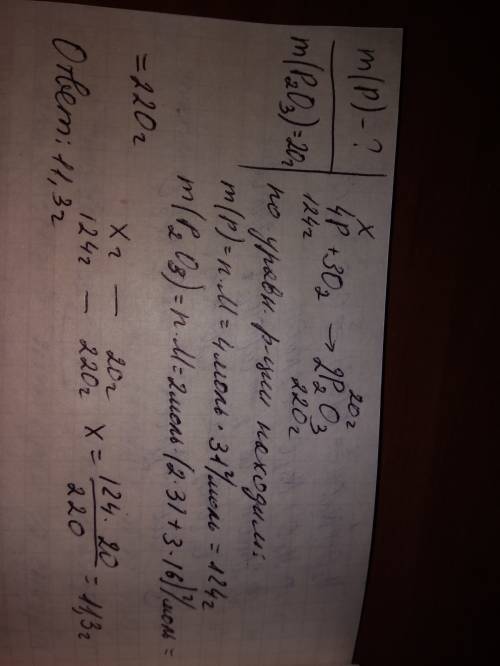 m(P) - ?
m(P₂O₃) = 20г
x 20г
4P + 3O₂ → 2P₂O₃
124г 220г
по уравн. р-ции находим:
m(P) = n·M = 4моль · 31г/моль = 124г
m(P₂O₃) = n·M = 2моль · (2·31 + 3·16)г/моль =
= 220г
Xг — 20г
124г — 220г X = 124·20/220 = 11,3г
Ответ: 11,3г